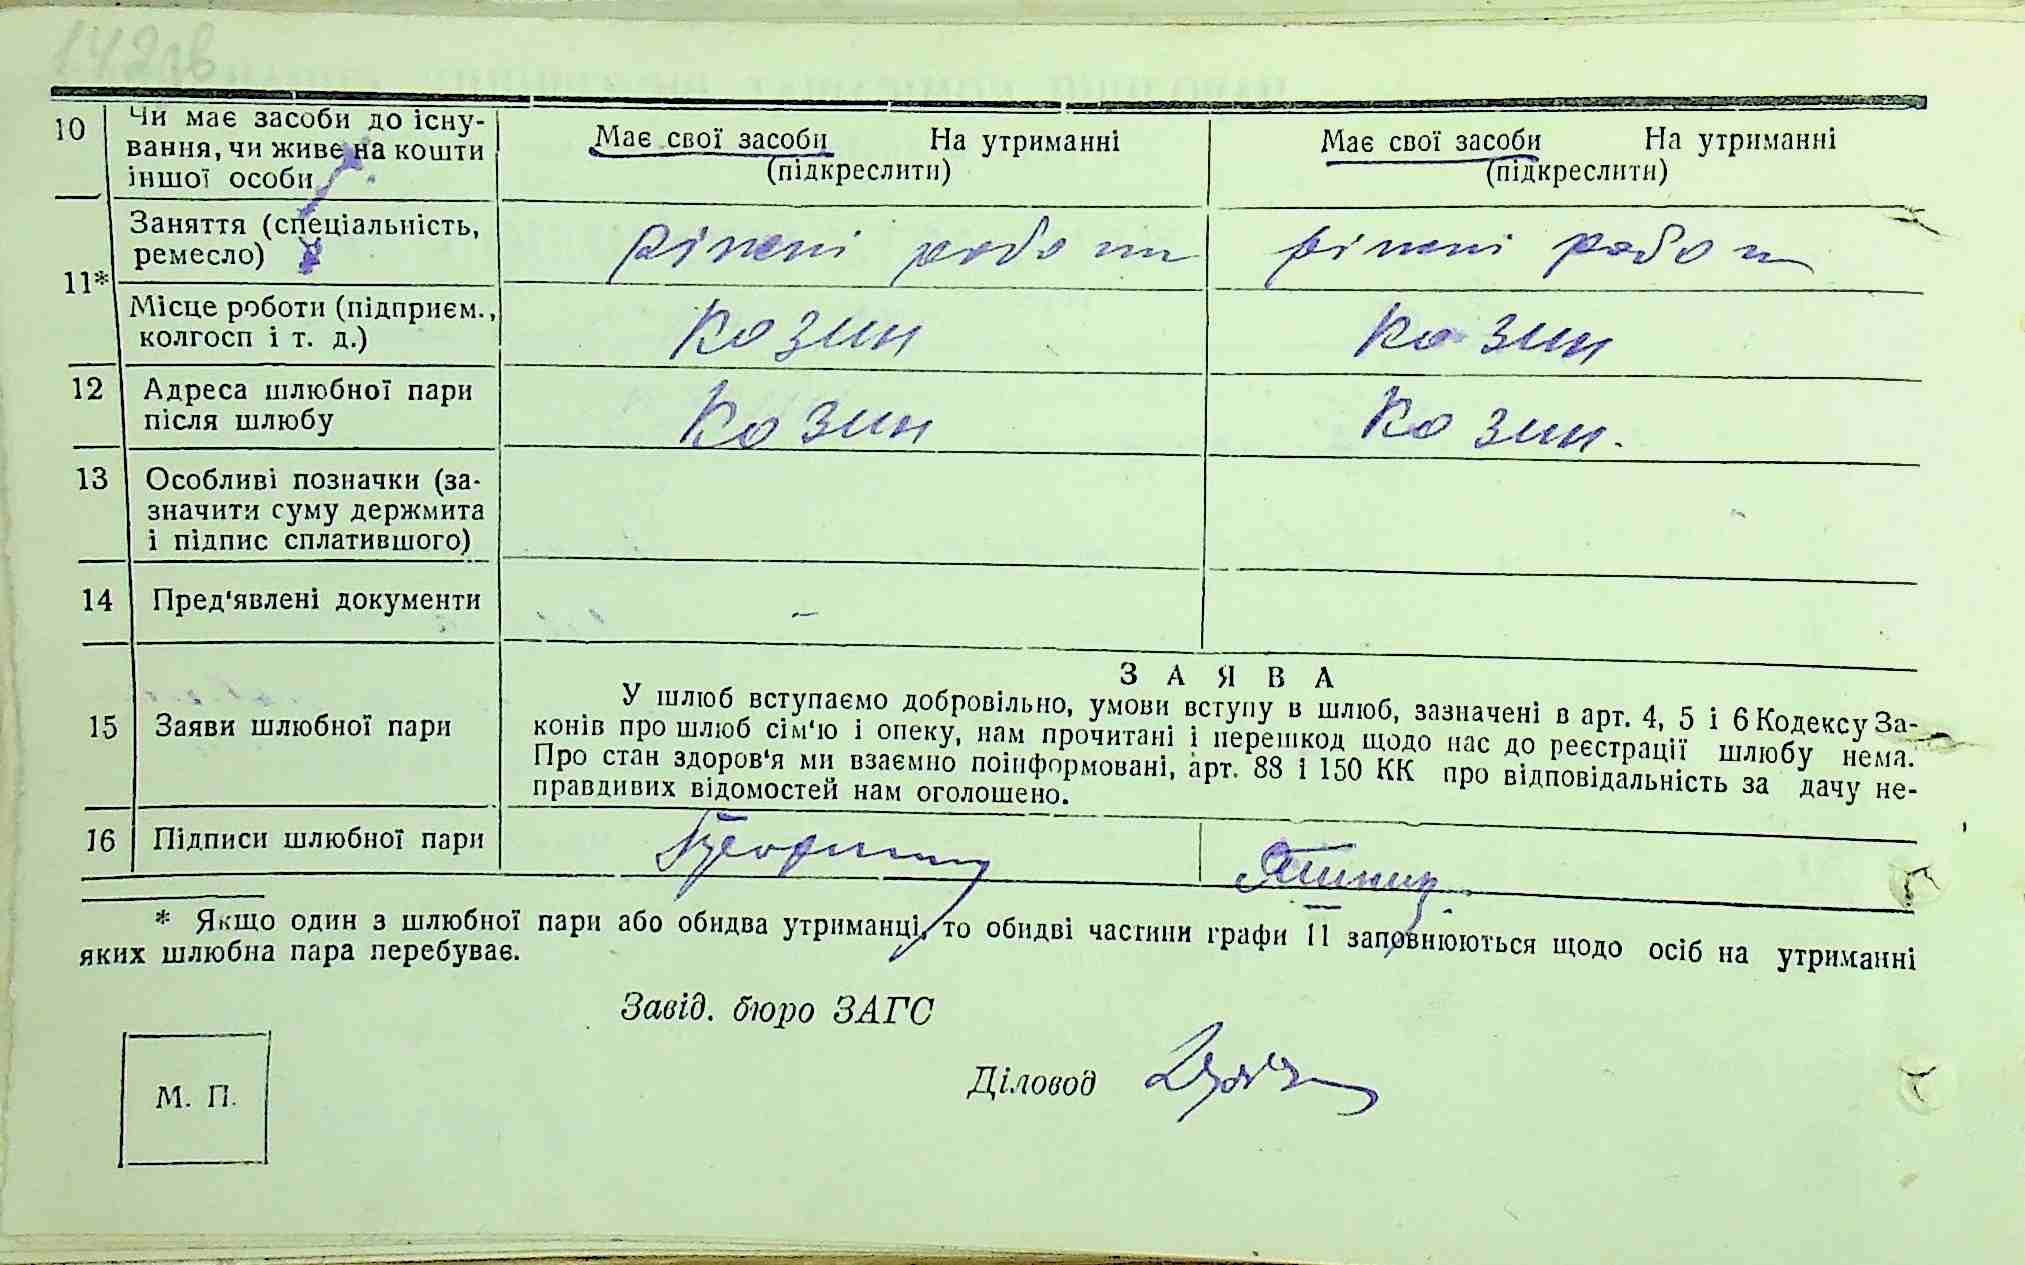 142зв
10 Чи має засоби до існу-
вання, чи живе на кошти
іншої особи
Має свої засоби На утриманні
(підкреслити)
Має свої засоби На утриманні
(підкреслити)
11* Заняття (спеціальність,
ремесло)
різні робо
різні робо
Місце роботи (підприєм.,
колгосп і т. д.)
Козин
Козин
12 Адреса шлюбної пари
після шлюбу
Козин
Козин.
13 Особливі позначки (за-
значити суму держмита
і підпис сплатившого)
14 Пред'явлені документи
–
15 Заяви шлюбної пари
ЗАЯВА
У шлюб вступаємо добровільно, умови вступу в шлюб, зазначені в арт. 4, 5 і 6 Кодексу За-
конів про шлюб сім'ю і опеку, нам прочитані і перешкод щодо нас до реєстрації шлюбу нема.
Про стан здоров'я ми взаємно поінформовані, арт. 88 і 150 КК про відповідальність за дачу не-
правдивих відомостей нам оголошено.
16 Підписи шлюбної пари
* Якщо один з шлюбної пари або обидва утриманці, то обидві частини графи 11 заповнюються щодо осіб на утриманні
яких шлюбна пара перебуває.
Завід. бюро ЗАГС
Діловод
М. П.